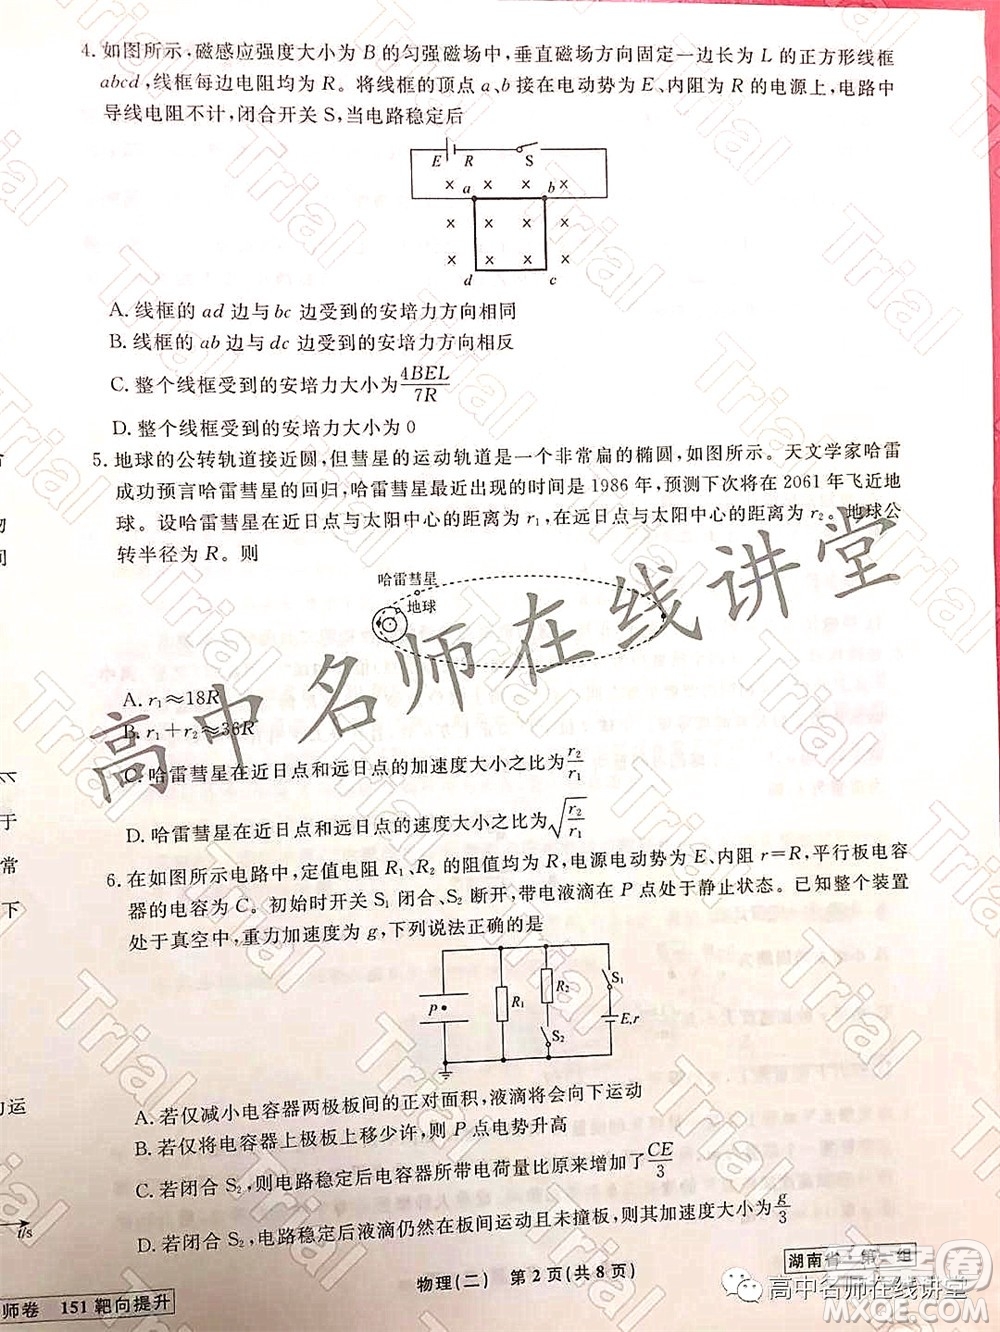 4. 如图所示,磁感应强度大小为 B 的匀强磁场中,垂直磁场方向固定一边长为 L 的正方形线框
abcd,线框每边电阻均为 R。将线框的顶点 a、b 接在电动势为 E、内阻为 R 的电源上,电路中
导线电阻不计,闭合开关 S,当电路稳定后
E R S
a b
d c
A. 线框的 ad 边与 bc 边受到的安培力方向相同
B. 线框的 ab 边与 dc 边受到的安培力方向相反
C. 整个线框受到的安培力大小为 4BEL/7R
D. 整个线框受到的安培力大小为 0
5. 地球的公转轨道接近圆,但彗星的运动轨道是一个非常扁的椭圆,如图所示。天文学家哈雷
成功预言哈雷彗星的回归,哈雷彗星最近出现的时间是 1986 年,预测下次将在 2061 年飞近地
球。设哈雷彗星在近日点与太阳中心的距离为 r₁,在远日点与太阳中心的距离为 r₂。地球公
转半径为 R。则
哈雷彗星
地球
A. r₁≈18R
B. r₁+r₂≈36R
C. 哈雷彗星在近日点和远日点的加速度大小之比为 r₂/r₁
D. 哈雷彗星在近日点和远日点的速度大小之比为 √(r₂/r₁)
高中名师在线讲堂
6. 在如图所示电路中,定值电阻 R₁、R₂ 的阻值均为 R,电源电动势为 E、内阻 r=R,平行板电容
器的电容为 C。初始时开关 S₁ 闭合、S₂ 断开,带电液滴在 P 点处于静止状态。已知整个装置
处于真空中,重力加速度为 g,下列说法正确的是
P R₁ R₂ S₁
S₂ E,r
A. 若仅减小电容器两极板间的正对面积,液滴将会向下运动
B. 若仅将电容器上极板上移少许,则 P 点电势升高
C. 若闭合 S₂,则电路稳定后电容器所带电荷量比原来增加了 CE/3
D. 若闭合 S₂,电路稳定后液滴仍然在板间运动且未撞板,则其加速度大小为 g/3
物理(二) 第 2 页(共 8 页)
湖南省 第一组
师卷 151 靶向提升
高中名师在线讲堂
MXQE.COM
Trial
t/s